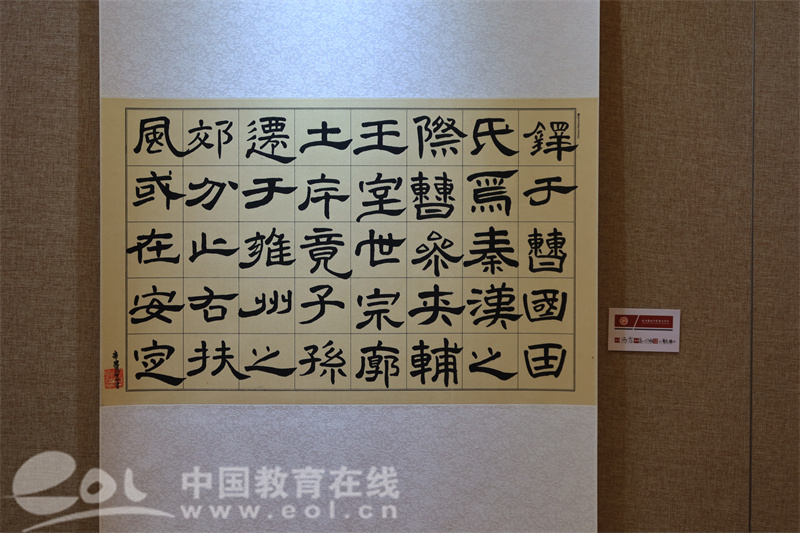 鐸于曹國因
氏焉秦漢之
際曹參夾輔
王室世宗廓
土斥竟子孫
遷于雍州之
郊分止右扶
風或在安定
eol 中国教育在线
www.eol.cn